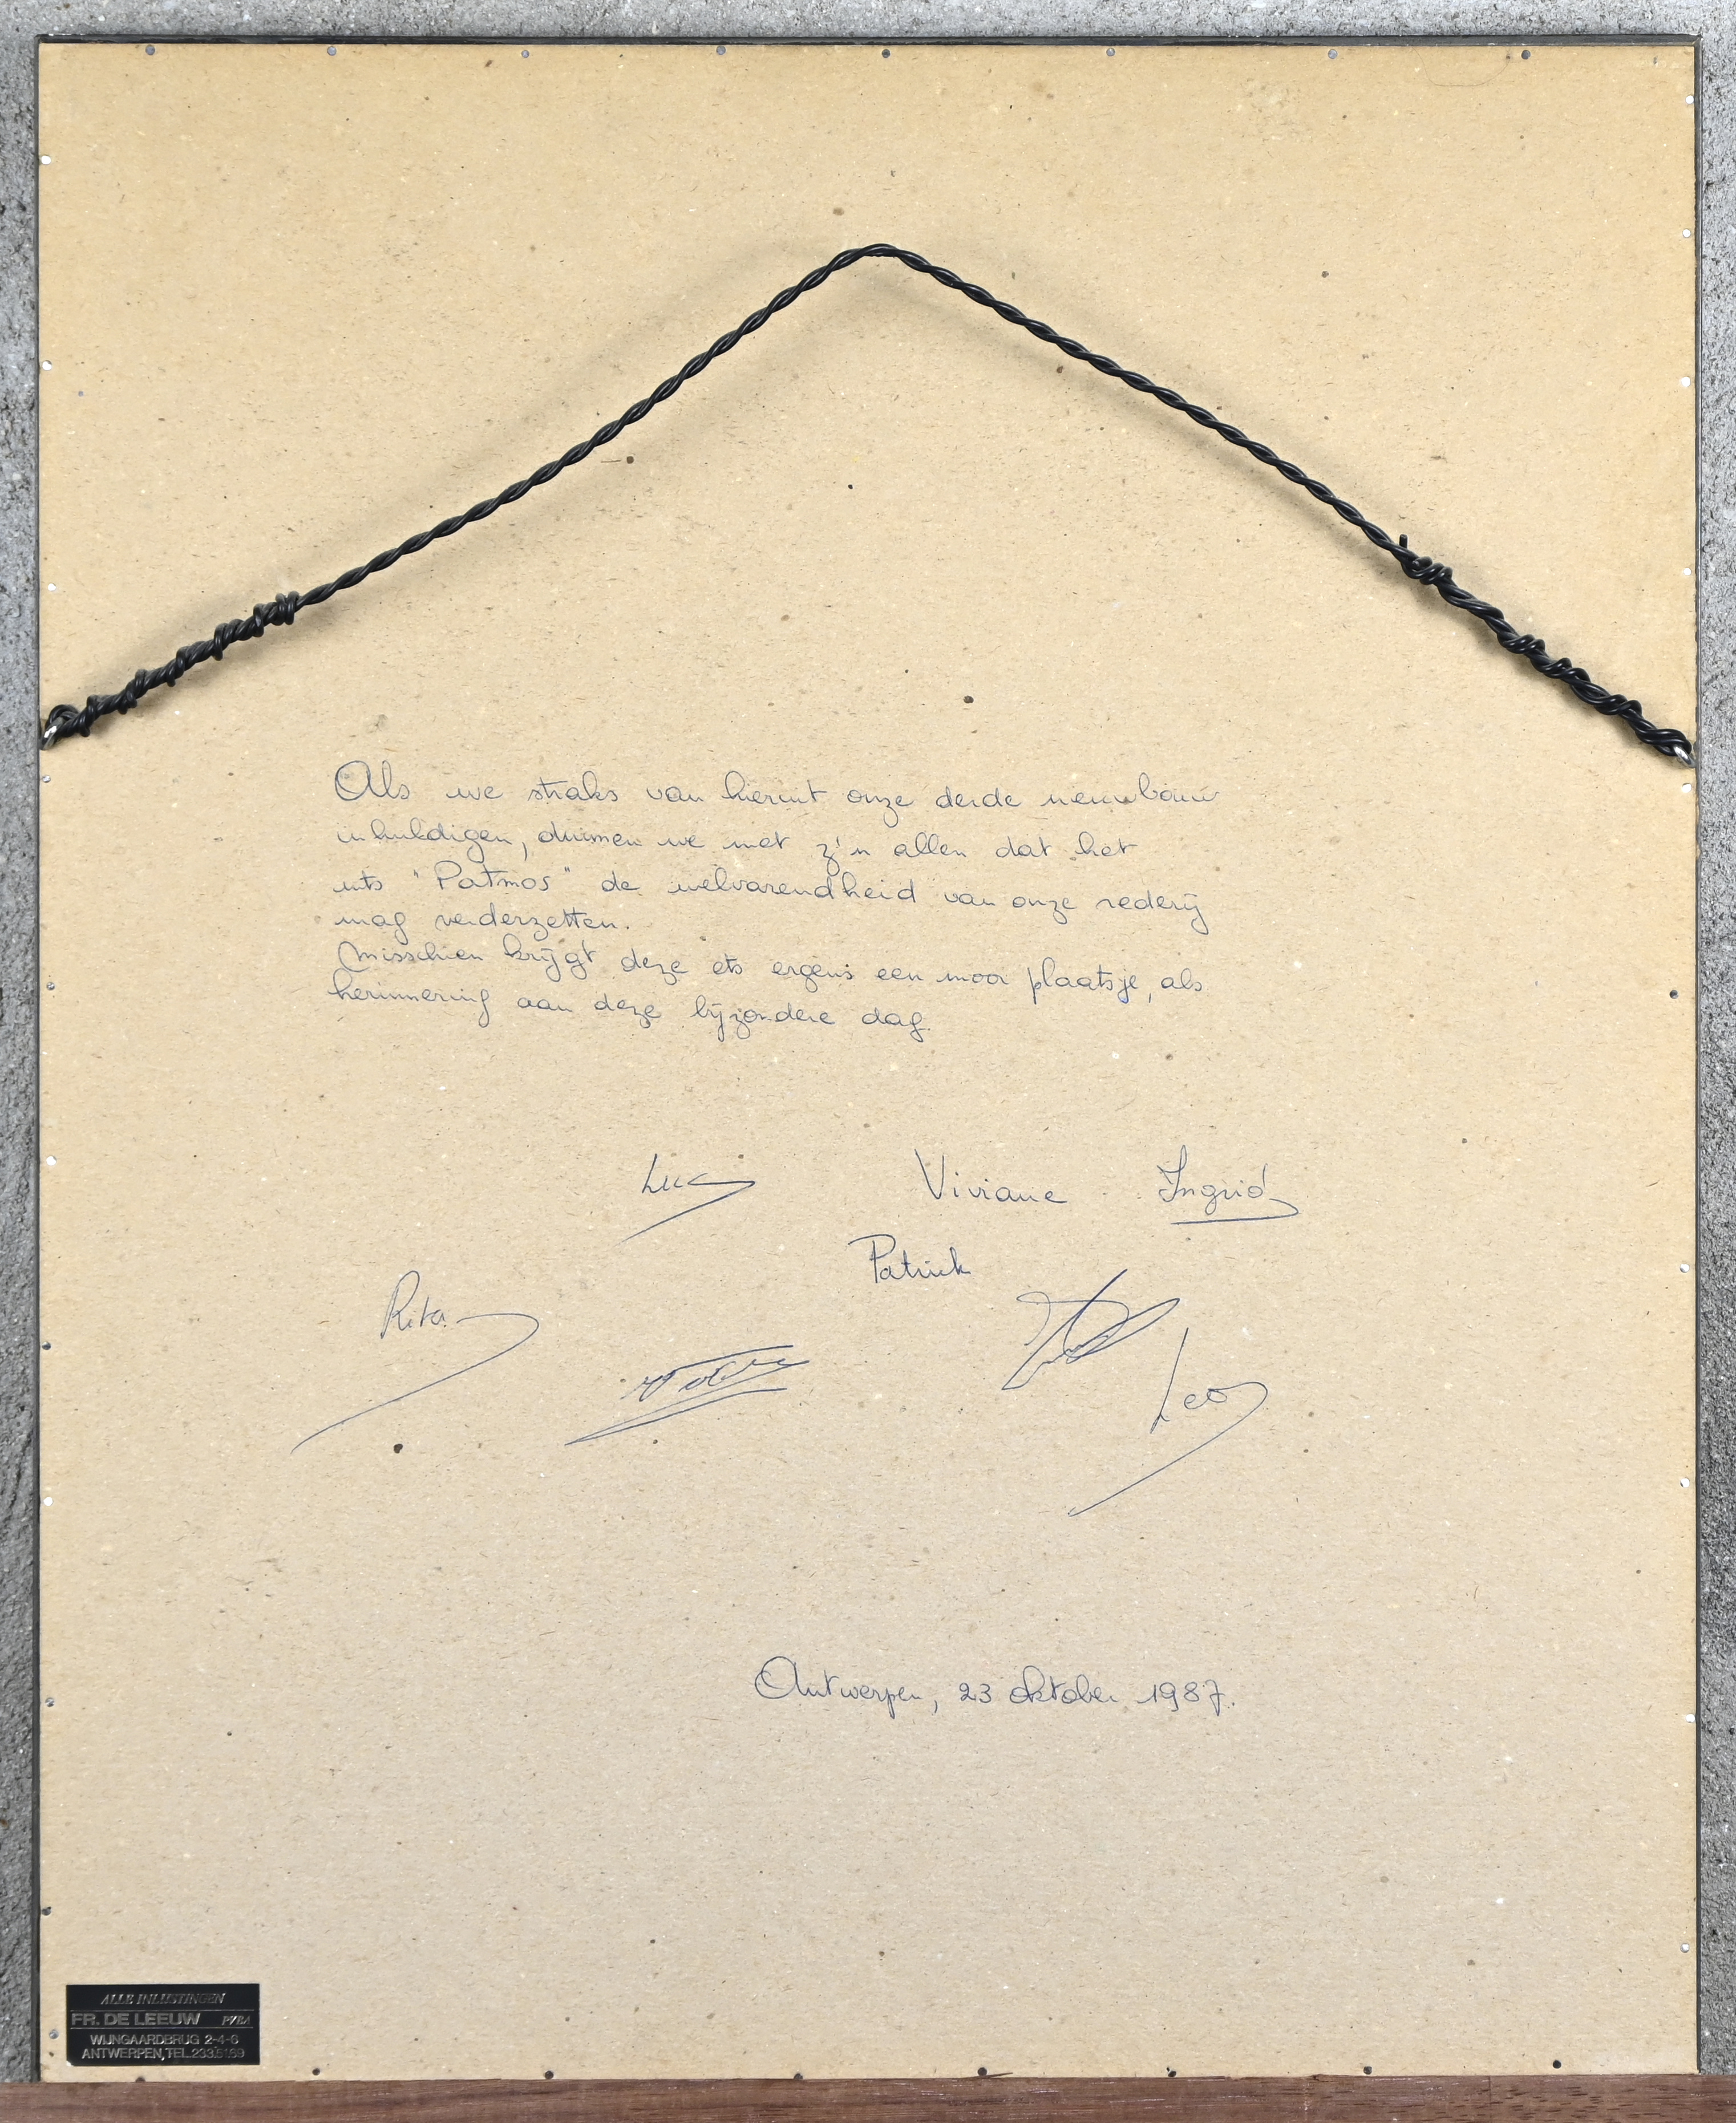 Als we straks van hieruit onze derde nieuwbouw
inhuldigen, duimen we met z'n allen dat het
mts "Patmos" de welvarendheid van onze rederij
mag verderzetten.
Misschien krijgt deze ets ergens een mooi plaatsje, als
herinnering aan deze bijzondere dag.
Luc Viviane Ingrid
Patrick
Rita
Leo
Antwerpen, 23 oktober 1987.
ALLE INLIJSTINGEN
FR. DE LEEUW PVBA
WIJNGAARDBRUG 2-4-6
ANTWERPEN, TEL.